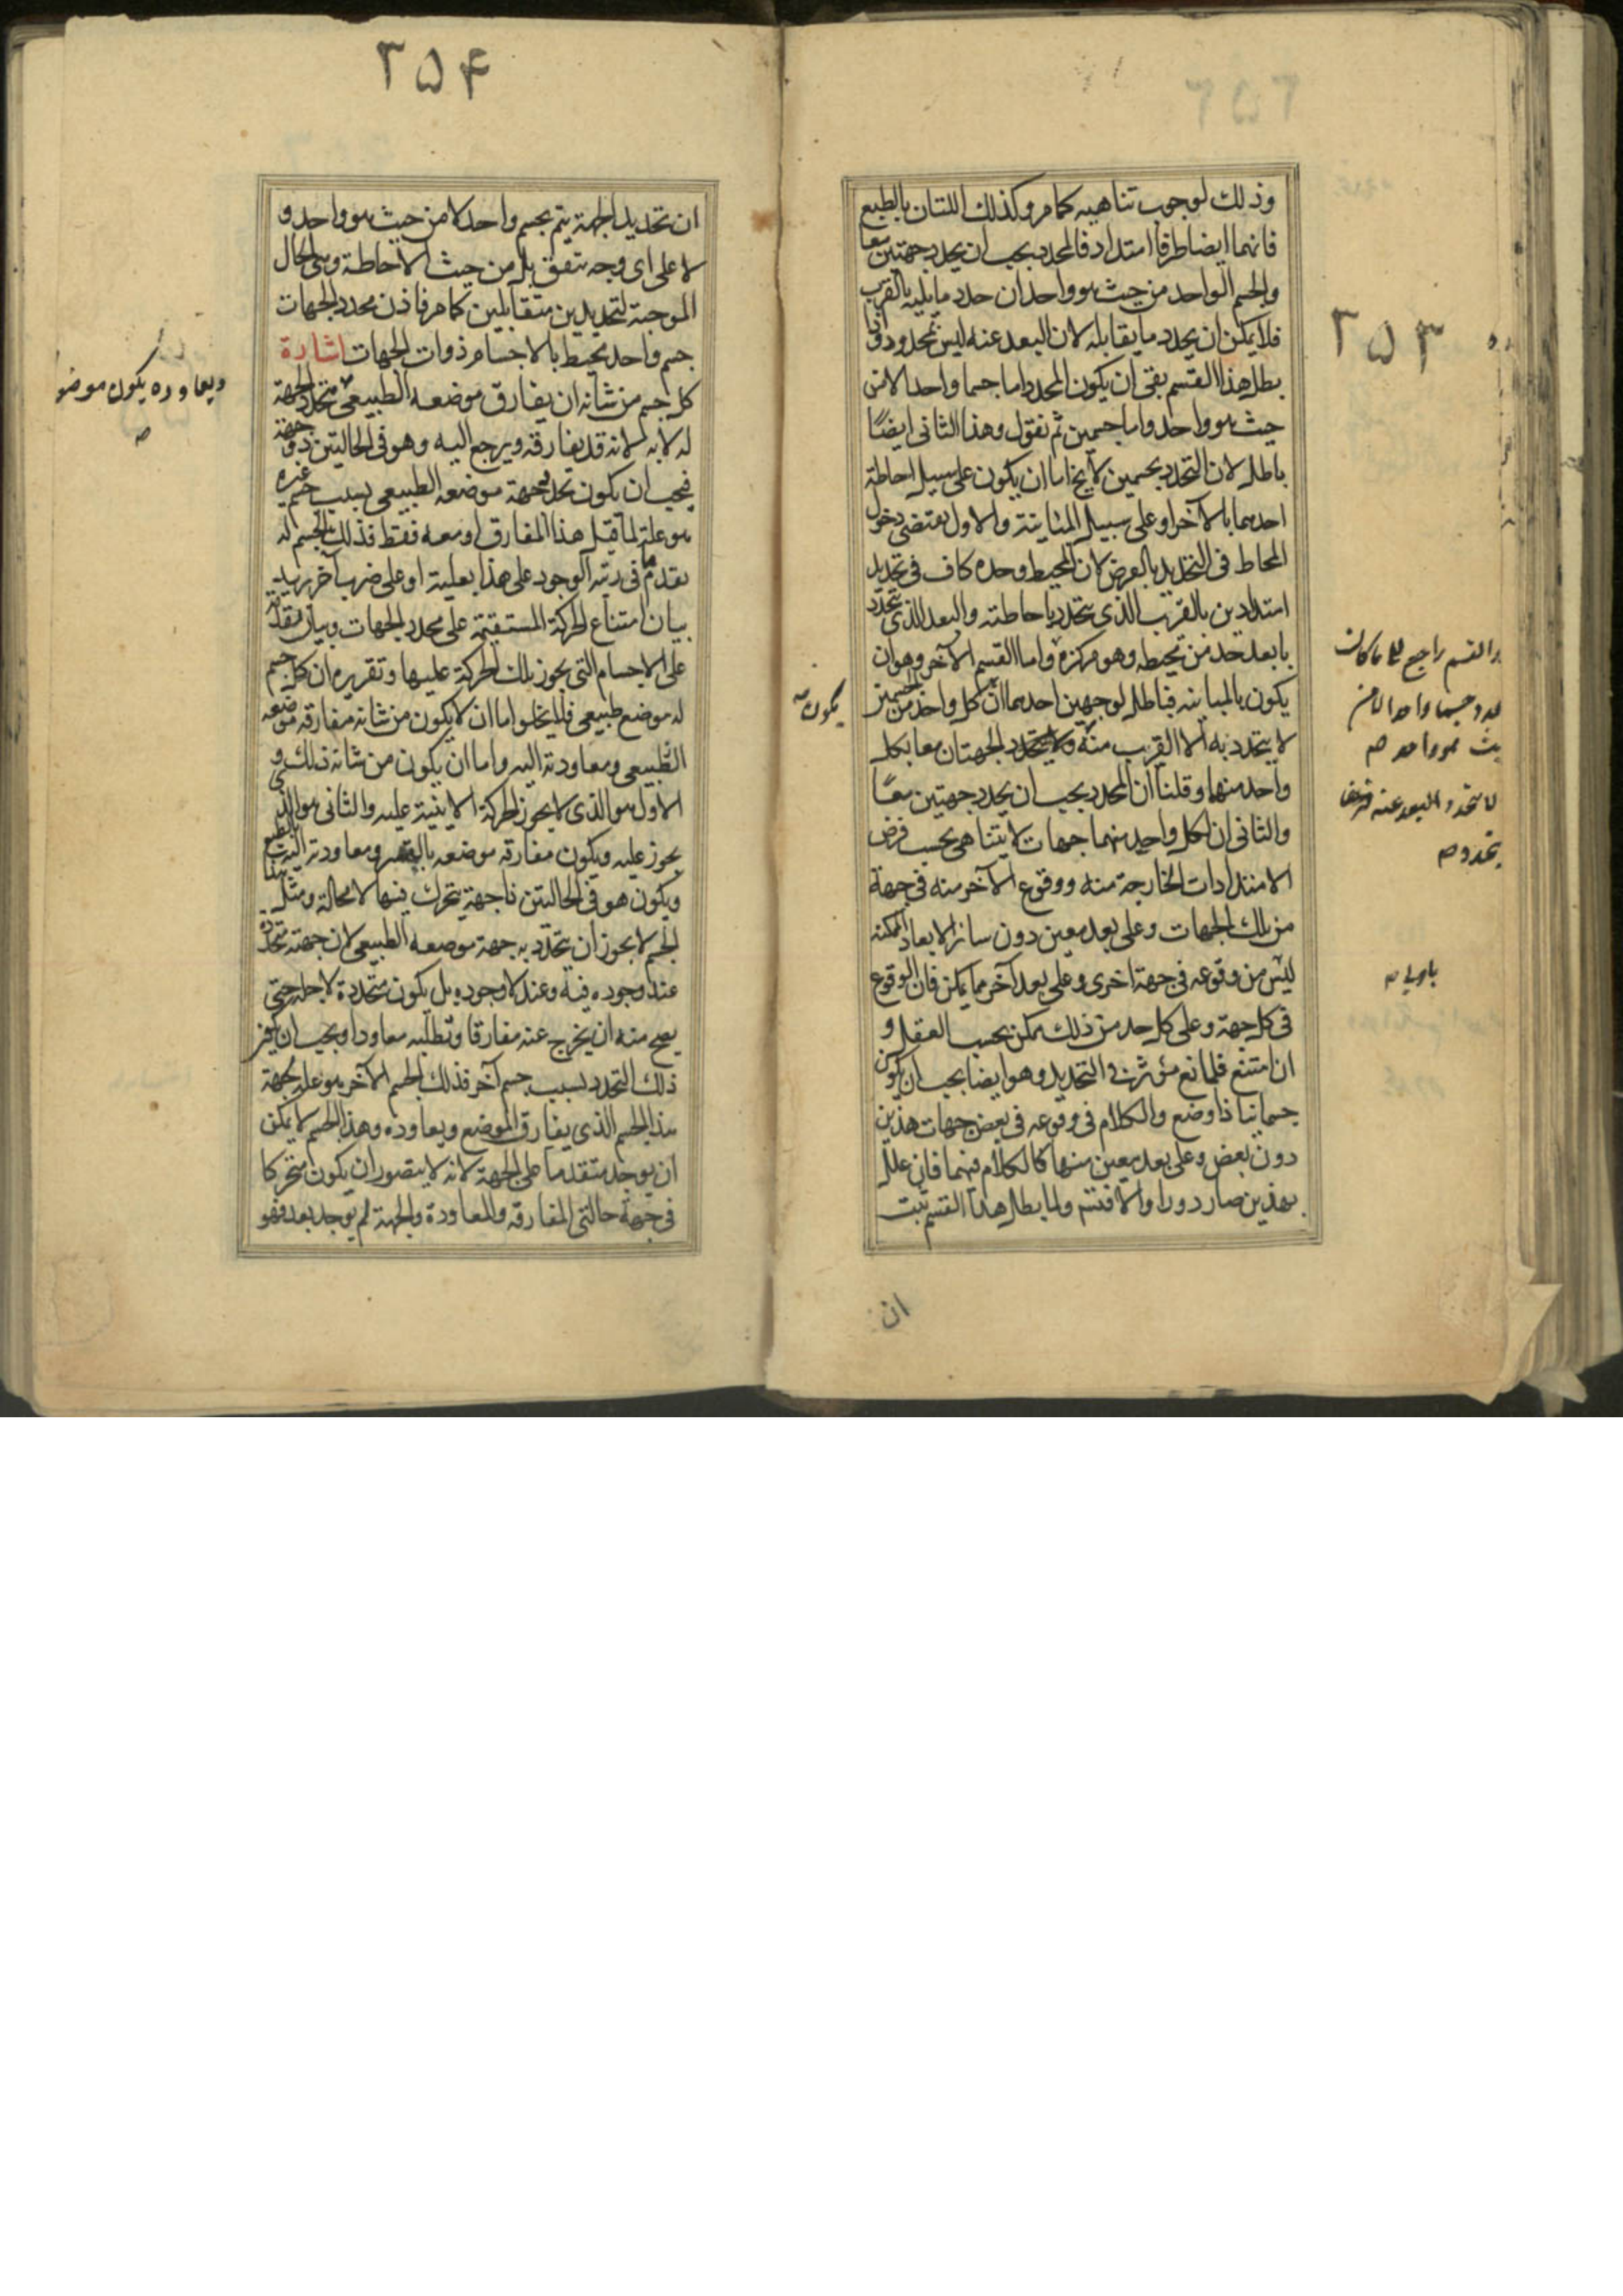 ٢٥٣
وذلك لوجوب تناهيه كما مر وكذلك اللتان بالطبع
فانهما ايضا طرفا امتداد فالمحدد يجب ان يحدد جهتين معا
والجسم الواحد من حيث هو واحد ان حدد ما يليه بالقرب
فلا يمكن ان يحدد ما يقابله لان البعد عنه ليس بمحدود واذا
بطل هذا القسم بقى ان يكون المحدد اما جسما واحدا لا من
حيث هو واحد واما جسمين ثم نقول وهذا الثانى ايضًا
باطل لان التحدد بجسمين لا يخ اما ان يكون على سبيل احاطة
احدهما بالآخر او على سبيل المباينة والاول يقتضى دخول
المحاط فى التحديد بالعرض لان المحيط وحده كاف فى تحديد
امتدادين بالقرب الذى يتحدد باحاطته والبعد الذى يتحدد
بابعد حد من محيطه وهو مركزه واما القسم الآخر وهو ان
يكون بالمباينه فباطل لوجهين احدهما ان كل واحد من الجسمين
لا يتحدد به الا القرب منه ولا يتحدد الجهتان معا بكل
واحد منهما وقلنا ان المحدد يجب ان يحدد جهتين معًا
والثانى ان لكل واحد منهما جهات لا يتناهى بحسب فرض
الامتدادات الخارجة منه ووقوع الآخر منه فى جهة
من تلك الجهات وعلى بعد معين دون سائر الابعاد الممكنه
ليس من وقوعه فى جهة اخرى وعلى بعد آخر مما يمكن فان الوقوع
فى كل جهة وعلى كل حد من ذلك يمكن بحسب العقل و
ان امتنع فلمانع مؤثر فى التحديد وهو ايضا يجب ان يكون
جسمانيا ذا وضع والكلام فى وقوعه فى بعض جهات هذين
دون بعض وعلى بعد معين منها كالكلام فيهما فان علل
بهذين صار دورا والا فتسلسل ولما بطل هذا القسم ثبت
ان
والقسم راجع الى ما كان
جسما واحدا لا من
حيث هو واحد صح
لا يتحدد البعد عنه
يتحدد صح
يكون
٢٥۴
ان تحديد الجهة يتم بجسم واحد لا من حيث هو واحد و
لا على اى وجه يتفق بل من حيث الاحاطة وهى الحال
الموجبة لتحديدين متقابلين كما مر فاذن محدد الجهات
جسم واحد يحيط بالاجسام ذوات الجهات اشارة
كل جسم من شأنه ان يفارق موضعه الطبيعى متحدد الجهة
له لا به لانه قد يفارقه ويرجع اليه وهو فى الحالتين ذو جهة
فيجب ان يكون تحدد جهة موضعه الطبيعى بسبب جسم غيره
هو علة لما قبل هذا المفارق او معه فقط فذلك الجسم له
تقدم ما فى رتبة الوجود على هذا بعلية او على ضرب آخر يريد
بيان امتناع الحركة المستقيمة على محدد الجهات وبيان تقدمه
على الاجسام التى يجوز تلك الحركة عليها وتقريره ان كل جسم
له موضع طبيعى فلا يخلوا اما ان لا يكون من شأنه مفارقة موضعه
الطبيعى ومعاودته اليه واما ان يكون من شأنه ذلك و
الاول هو الذى لا يجوز الحركة الاينية عليه والثانى هو الذى
يجوز عليه ويكون مفارقة موضعه بالقسر ومعاودته اليه بالطبع
ويكون هو فى الحالتين ذا جهة يتحرك فيها لا محالة ومثل هذا
الجسم لا يجوز ان يتحدد به جهة موضعه الطبيعى لان جهته متحددة
عند وجوده فيه وعند لا وجوده بل يكون متحددة لاجله حتى
يصح منه ان يخرج عنه مفارقا ويطلبه معاودا ويجب ان يكون
ذلك التحدد بسبب جسم آخر فذلك الجسم الآخر هو علة لجهة
هذا الجسم الذى يفارق الموضع ويعاوده وهذا الجسم لا يمكن
ان يوجد متقدما على الجهة لانه لا يتصور ان يكون متحركا
فى جهة حالتى المفارقة والمعاودة والجهة لم يوجد بعد فهو
ويعاوده يكون موضوا